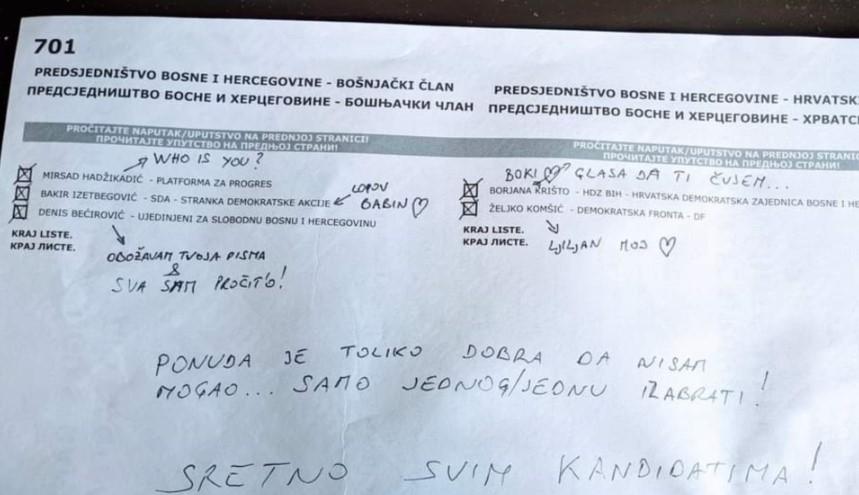 701
PREDSJEDNIŠTVO BOSNE I HERCEGOVINE - BOŠNJAČKI ČLAN
ПРЕДСЈЕДНИШТВО БОСНЕ И ХЕРЦЕГОВИНЕ - БОШЊАЧКИ ЧЛАН
PROČITAJTE NAPUTAK/UPUTSTVO NA PREDNJOJ STRANICI!
ПРОЧИТАЈТЕ УПУТСТВО НА ПРЕДЊОЈ СТРАНИ!
WHO IS YOU?
MIRSAD HADŽIKADIĆ - PLATFORMA ZA PROGRES
BAKIR IZETBEGOVIĆ - SDA - STRANKA DEMOKRATSKE AKCIJE
LOPOV
BABIN
DENIS BEĆIROVIĆ - UJEDINJENI ZA SLOBODNU BOSNU I HERCEGOVINU
KRAJ LISTE.
КРАЈ ЛИСТЕ.
OBOŽAVAM TVOJA PISMA
&
SVA SAM PROČIT'O!
PREDSJEDNIŠTVO BOSNE I HERCEGOVINE - HRVATSK
ПРЕДСЈЕДНИШТВО БОСНЕ И ХЕРЦЕГОВИНЕ - ХРВАТС
PROČITAJTE NAPUTAK/UPUTSTVO NA PREDNJOJ STRANIC
ПРОЧИТАЈТЕ УПУТСТВО НА ПРЕДЊОЈ СТРАНИ!
BOKI GLASA DA TI ČUJEM...
BORJANA KRIŠTO - HDZ BIH - HRVATSKA DEMOKRATSKA ZAJEDNICA BOSNE I HE
ŽELJKO KOMŠIĆ - DEMOKRATSKA FRONTA - DF
KRAJ LISTE.
КРАЈ ЛИСТЕ.
LJILJAN MOJ
PONUDA JE TOLIKO DOBRA DA NISAM
MOGAO... SAMO JEDNOG/JEDNU IZABRATI!
SRETNO SVIM KANDIDATIMA!